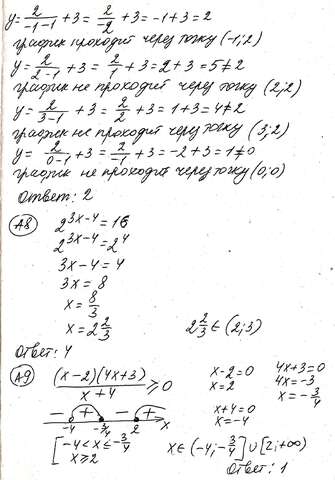 y = 2/(-1-1) + 3 = 2/-2 + 3 = -1 + 3 = 2
график проходит через точку (-1; 2)
y = 2/(2-1) + 3 = 2/1 + 3 = 2 + 3 = 5 ≠ 2
график не проходит через точку (2; 2)
y = 2/(3-1) + 3 = 2/2 + 3 = 1 + 3 = 4 ≠ 2
график не проходит через точку (3; 2)
y = 2/(0-1) + 3 = 2/-1 + 3 = -2 + 3 = 1 ≠ 0
график не проходит через точку (0; 0)
Ответ: 2
А8 2^(3x-4) = 16
2^(3x-4) = 2^4
3x - 4 = 4
3x = 8
x = 8/3
x = 2 2/3 2 2/3 ∈ (2; 3)
Ответ: 4
А9 (x-2)(4x+3)/(x+4) ≥ 0 x-2=0 4x+3=0
x=2 4x=-3
x+4=0 x=-3/4
x=-4
- + - +
-4 -3/4 2 x
[ -4 < x ≤ -3/4 x ∈ (-4; -3/4] ∪ [2; +∞)
x ≥ 2 Ответ: 1